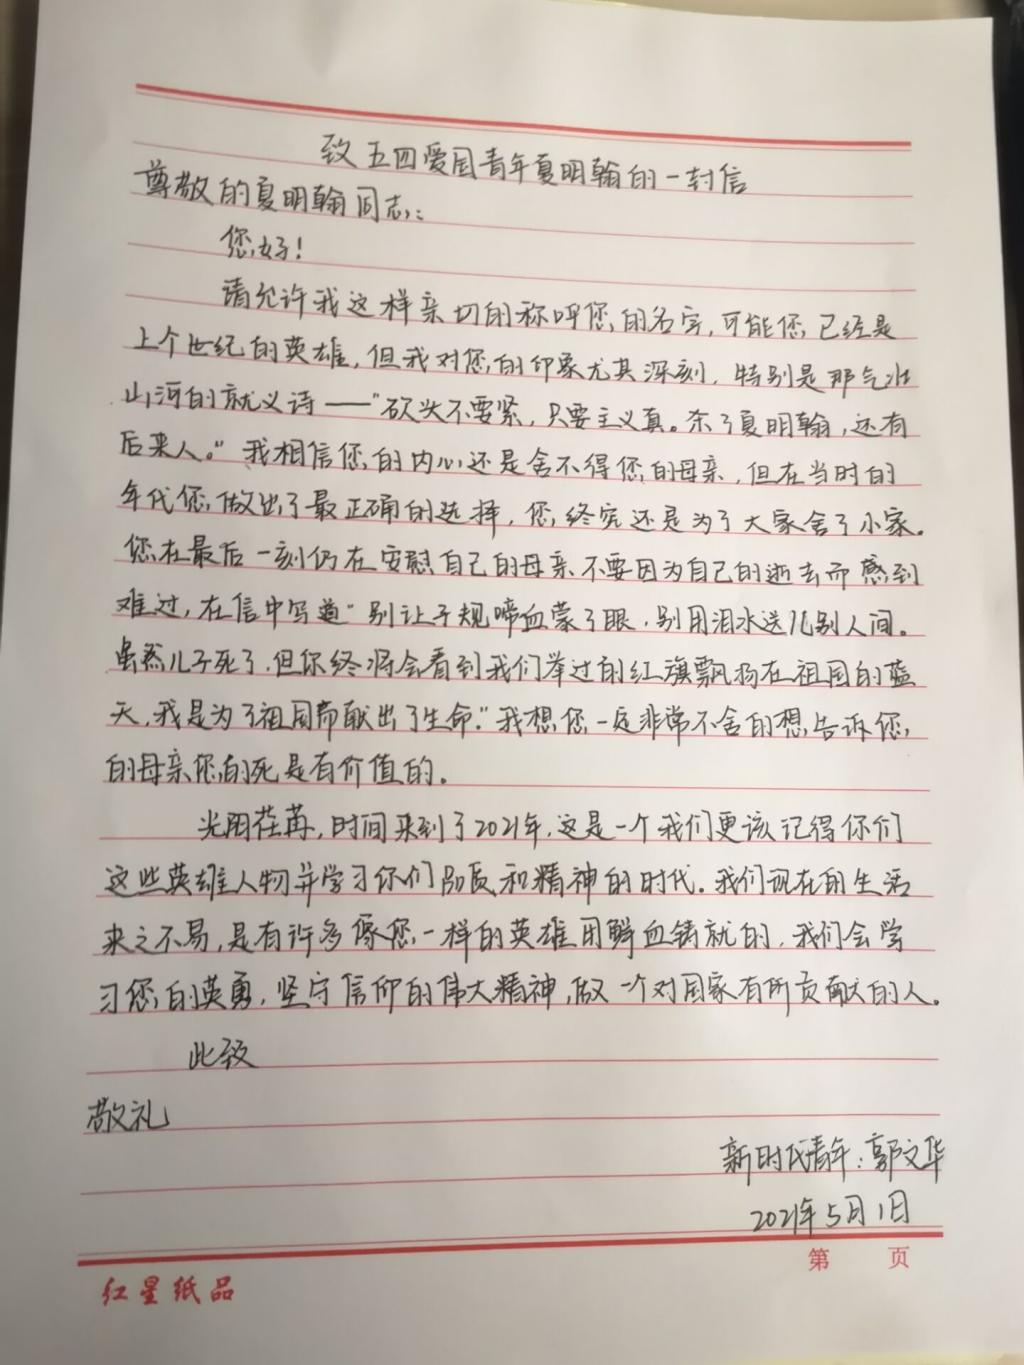 致五四爱国青年夏明翰的一封信
尊敬的夏明翰同志：
您好！
请允许我这样亲切的称呼您的名字，可能您已经是
上个世纪的英雄，但我对您的印象尤其深刻，特别是那气壮
山河的就义诗——“砍头不要紧，只要主义真。杀了夏明翰，还有
后来人。”我相信您的内心还是舍不得您的母亲，但在当时的
年代您做出了最正确的选择，您终究还是为了大家舍了小家。
您在最后一刻仍在安慰自己的母亲不要因为自己的逝去而感到
难过，在信中写道“别让子规啼血蒙了眼，别用泪水送儿别人间。
虽然儿子死了，但你终将会看到我们举过的红旗飘扬在祖国的蓝
天，我是为了祖国而献出了生命。”我想您一定非常不舍的想告诉您
的母亲您的死是有价值的。
光阴荏苒，时间来到了2021年，这是一个我们更该记得你们
这些英雄人物并学习你们品质和精神的时代。我们现在的生活
来之不易，是有许多像您一样的英雄用鲜血铸就的，我们会学
习您的英勇，坚守信仰的伟大精神，做一个对国家有所贡献的人。
此致
敬礼
新时代青年：郭文华
2021年5月1日
第 页
红星纸品